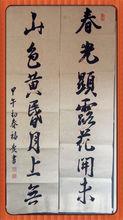 春光顯露花開未
山色黃昏月上無
甲午初春
書